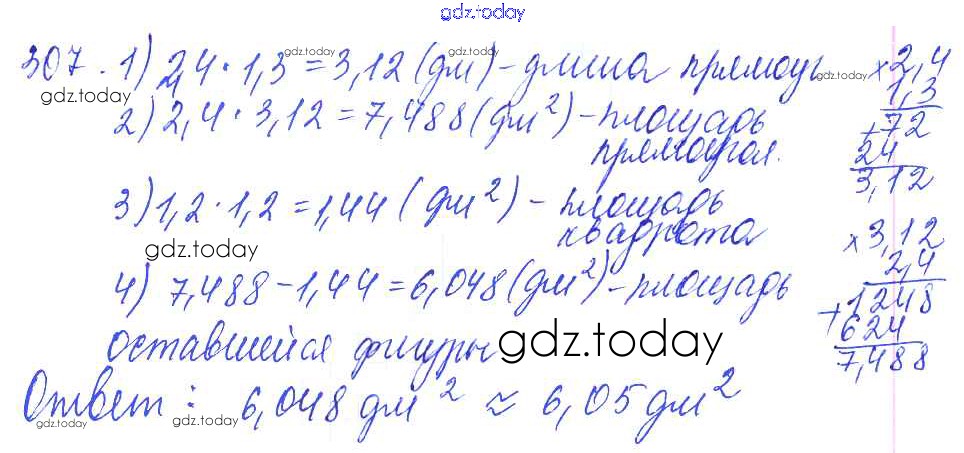 gdz.today
307. 1) 2,4 · 1,3 = 3,12 (дм) - длина прямоуг.
gdz.today
gdz.today
gdz.today
2) 2,4 · 3,12 = 7,488 (дм²) - площадь
прямоугол.
3) 1,2 · 1,2 = 1,44 (дм²) - площадь
квадрата
gdz.today
4) 7,488 - 1,44 = 6,048 (дм²) - площадь
оставшейся фигуры
gdz.today
Ответ: 6,048 дм² ≈ 6,05 дм²
gdz.today
gdz.today
gdz.today
× 2,4
1,3
+ 72
24
3,12
× 3,12
2,4
+ 1248
624
7,488